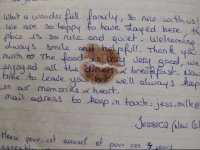 What a wonderfull family, so nice with us!
we are so happy to have stayed here, the
place is so nice and quiet. Welcoming
always smile and helpfull. Thank you
much. The food is very very good, we
enjoyed all the dinner & breakfast. Now
time to leave you but we'll always keep
in our memories & heart.
mail address to keep in touch: jess.mille@
Jessica (New Cal
Merci pour cet accueil et pour ces 4 jours